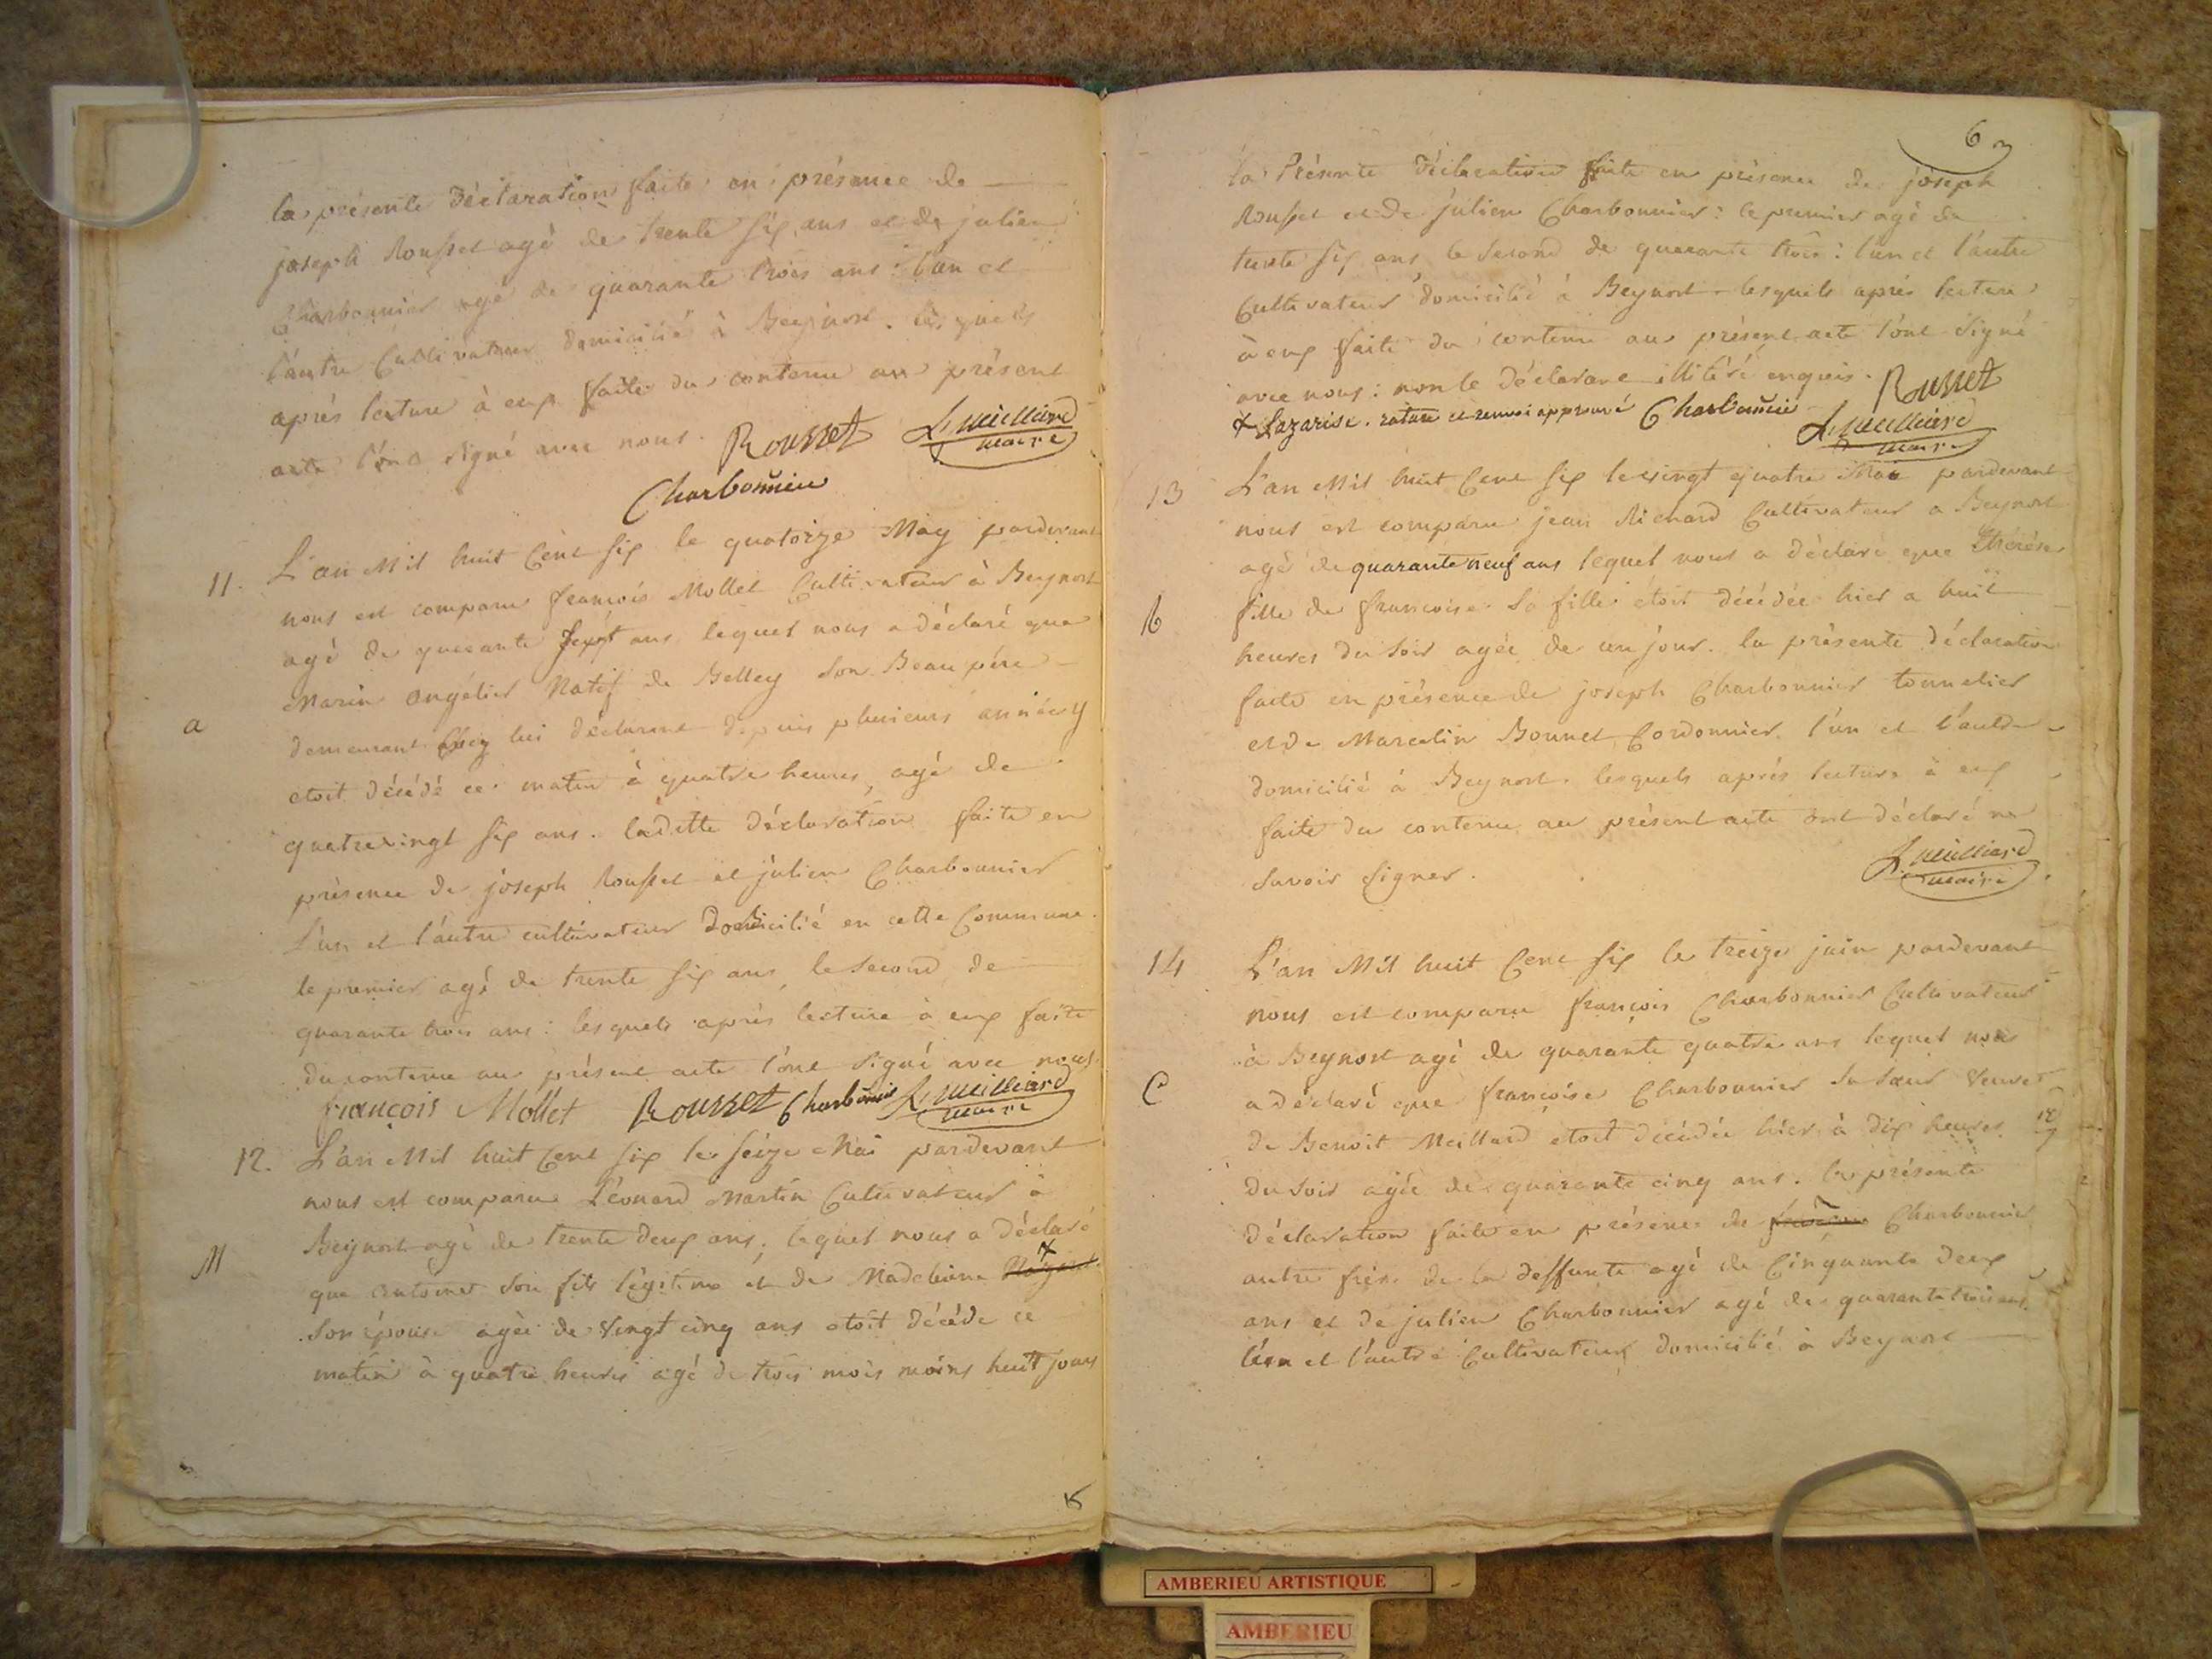 la présente Déclaration faite en présence de
joseph Rousset agé de trente six ans et de julien
Charbonnier agé de quarante trois ans : l'un et
l'autre Cultivateur domicilié à Beynost. lesquels
aprés lecture à eux faite du contenu au présent
acte l'ont signé avec nous. Rousset L. Meilliard
maire
Charbonnier
11. L'an Mil huit Cent six le quatorze May pardevant
nous est comparu françois Mollet Cultivateur à Beynost
agé de quarante sept ans lequel nous a déclaré que
Marin Natif de Belley son Beau pére
a
demeurant Chez lui déclarant depuis plusieurs années
etoit décédé ce matin à quatre heures, agé de
quatrevingt six ans. laditte déclaration faite en
présence de joseph Rousset et julien Charbonnier
L'un et l'autre cultivateur Domicilié en cette Commune.
le premier agé de trente six ans, le second de
quarante trois ans : lesquels aprés lecture à eux faite
du contenu au présent acte l'ont signé avec nous.
françois Mollet Rousset Charbonnier L. Meilliard
maire
12. L'an Mil huit Cent six le seize Mai pardevant
nous est comparu Léonard Martin Cultivateur à
Beynost agé de trente deux ans, lequel nous a déclaré
M
que antoine son fils légitime et de Madeleine +
son épouse agée de vingt cinq ans etoit décédé ce
matin à quatre heures agé de trois mois moins huit jours
6
la Présente Déclaration faite en présence de joseph
Rousset et de julien Charbonnier : le premier agé de
trente six ans le second de quarante trois : l'un et l'autre
Cultivateur domicilié à Beynost lesquels aprés lecture
à eux faite du contenu au présent acte l'ont signé
avec nous : non le déclarant illitéré enquis. Rousset
+ Lazarise. rature et renvoi approuvé Charbonnier
L. Meilliard
maire
13 L'an Mil huit Cent six le vingt quatre Mai pardevant
nous est comparu jean Richard Cultivateur a Beynost
agé de quarante neuf ans lequel nous a déclaré que Thérése
R
fille de francoise sa fille étoit décédée hier a huit
heures du soir agée de un jour. la présente déclaration
faite en présence de joseph Charbonnier tonnelier
et de Marcelin Bonnet Cordonnier l'un et l'autre
domicilié à Beynost. lesquels aprés lecture à eux
faite du contenu au présent acte ont déclaré ne
savoir signer.
L. Meilliard
maire
14 L'an Mil huit Cent six le treize juin pardevant
nous est comparu françois Charbonnier Cultivateur
à Beynost agé de quarante quatre ans lequel nous
C
a déclaré que françoise Charbonnier sa sœur veuve
de Benoit Meillard etoit décédée hiér à dix heures
du soir agée de quarante cinq ans. la présente
déclaration faite en présence de Charbonnier
autre frére de la deffunte agé de Cinquante deux
ans et de julien Charbonnier agé de quarante trois ans.
l'un et l'autre Cultivateur domicilié à Beynost
AMBERIEU ARTISTIQUE
AMBERIEU